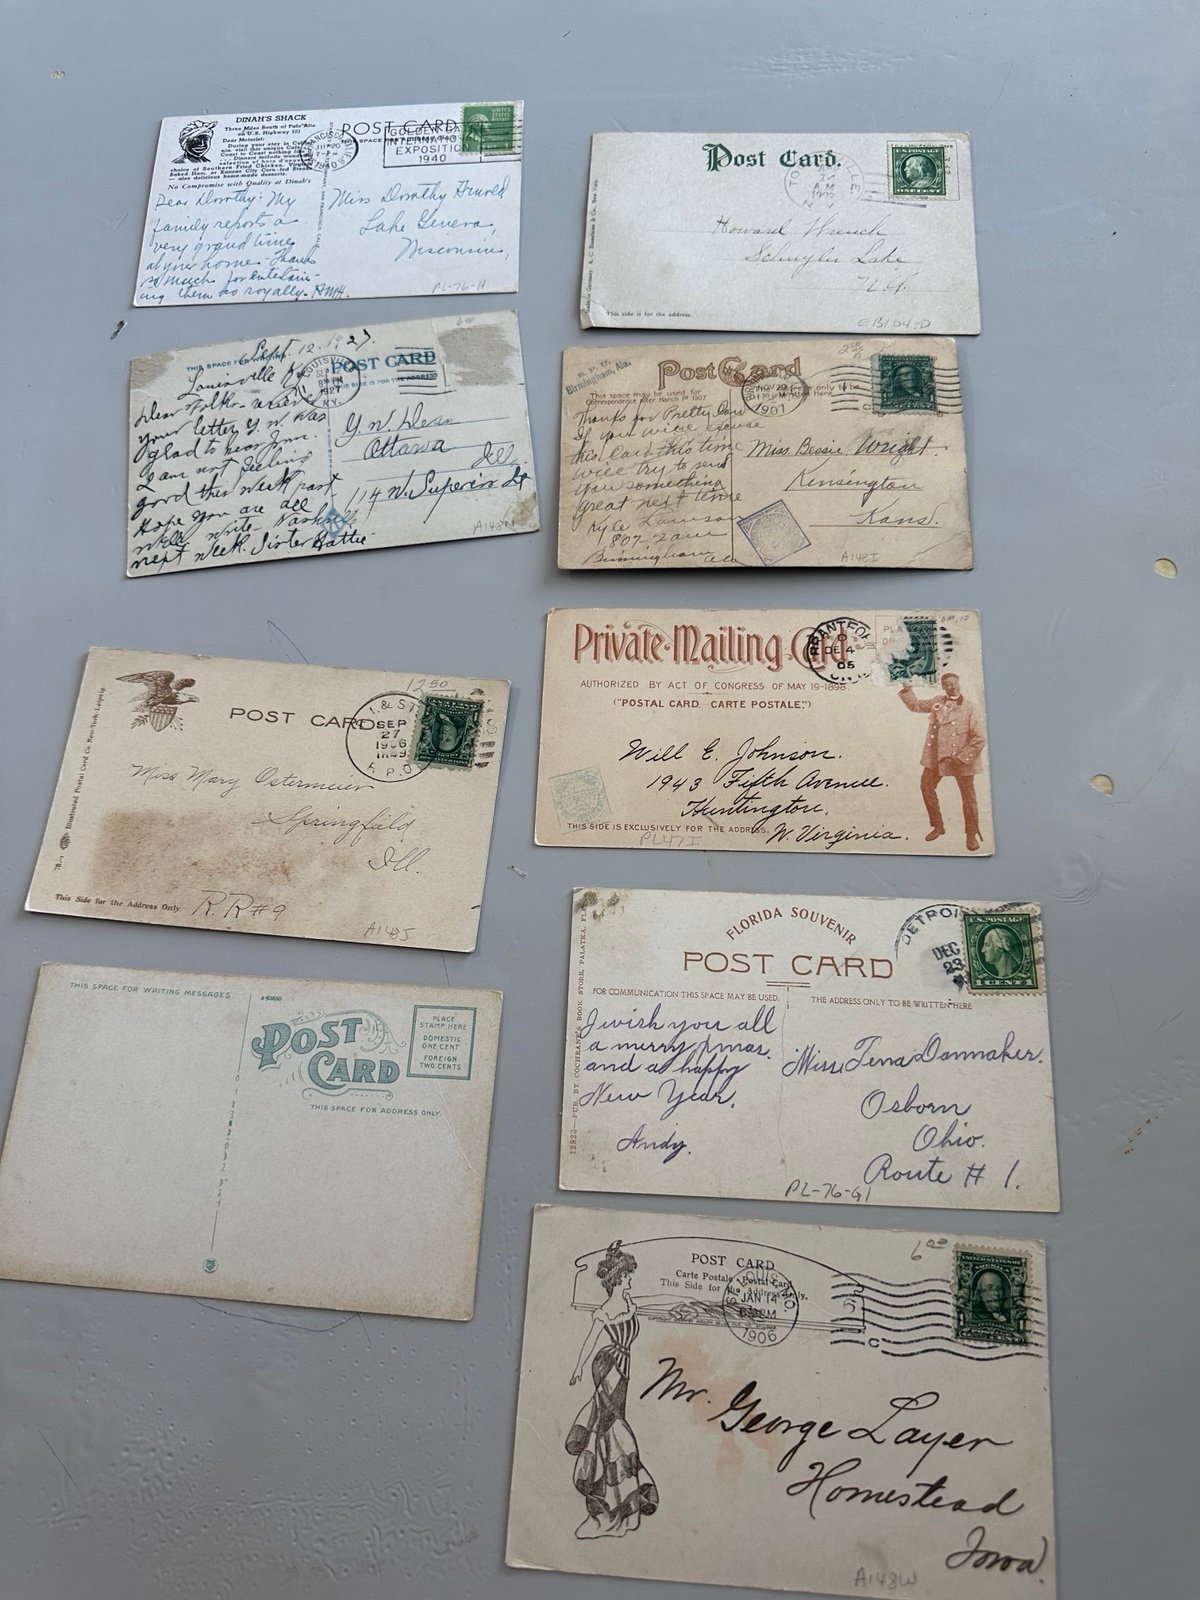 DINAH'S SHACK
Three Miles South of Palo Alto
on U.S. Highway 101
Dear Motorist:
During your stay in
use, visit this unique
Coast to Coast nothing
Dinners include
selection at
choice of Southern Fried Chicken,
Baked Ham, or Kansas City Corn-fed
— also delicious home-made desserts.
No Compromise with Quality at Dinah's
POST CARD
THIS SPACE FOR
SAN FRANCISCO
1940
GOLDEN GATE
INTERNATIONAL
EXPOSITION
1940
UNITED
STATES
POSTAGE
Dear Dorothy: My
family reports a
very grand time
at your home - Thanks
so much for entertain-
ing them so royally. AMH.
Miss Dorothy Arnold
Lake Geneva,
Wisconsin,
PL-76-H
Post Card.
A.M.
N.Y.
U.S. POSTAGE
ONE CENT
Howard Wrench
Schuyler Lake
N.Y.
This side is for the address.
EB104-D
Sept. 12, 1927
THIS SPACE FOR WRITING
POST CARD
THIS SIDE IS FOR THE ADDRESS
LOUISVILLE
SEP
1927
KY.
Louisville Ky
Dear Folks - received
your letter G.N. was
glad to hear from.
I am not feeling
good this week past
Hope you are all
well write - Nashville
next week. Sister Hattie
G.N. Dean
Ottawa
Ill.
114 N. Superior St
A148N
R. P. O.
Birmingham, Ala.
Post Card
This space may be used for
Correspondence after March 1st 1907
NOV 20
1907
Thanks for Pretty Card
If you will excuse
this Card this time
will try to send
you something
great next time
Kyle Lawson
807-2ave
Birmingham Ala
Miss Bessie Wright.
Kensington
Kans.
A148I
POST CARD
1250
SEP
27
1906
R.P.O.
Illustrated Postal Card Co. New York-Leipzig.
Miss Mary Ostermeier
Springfield
Ill.
This Side for the Address Only.
R.R#9
A148J
Private Mailing Card
AUTHORIZED BY ACT OF CONGRESS OF MAY 19-1898.
("POSTAL CARD. CARTE POSTALE.")
BRANTFORD
DE 4
05
ONT.
Will E. Johnson.
1943 Fifth Avenue.
Huntington,
W. Virginia.
THIS SIDE IS EXCLUSIVELY FOR THE ADDRESS.
PL47I
THIS SPACE FOR WRITING MESSAGES
A-63660
POST
CARD
PLACE
STAMP HERE
DOMESTIC
ONE CENT
FOREIGN
TWO CENTS
THIS SPACE FOR ADDRESS ONLY
12823—PUB. BY COCHRANE'S BOOK STORE, PALATKA, FLA.
FLORIDA SOUVENIR
POST CARD
DETROIT
DEC
23
U.S. POSTAGE
1 CENT 1
FOR COMMUNICATION THIS SPACE MAY BE USED.
THE ADDRESS ONLY TO BE WRITTEN HERE
I wish you all
a merry xmas.
and a happy
New Year.
Andy.
Miss Tena Danmaker.
Osborn
Ohio.
Route # 1.
PL-76-G1
POST CARD
Carte Postale - Postal Card
This Side for the Address Only.
ST. LOUIS, MO.
JAN 14
PM
1906
6.00
Mr. George Layer
Homestead
Iowa.
A148W